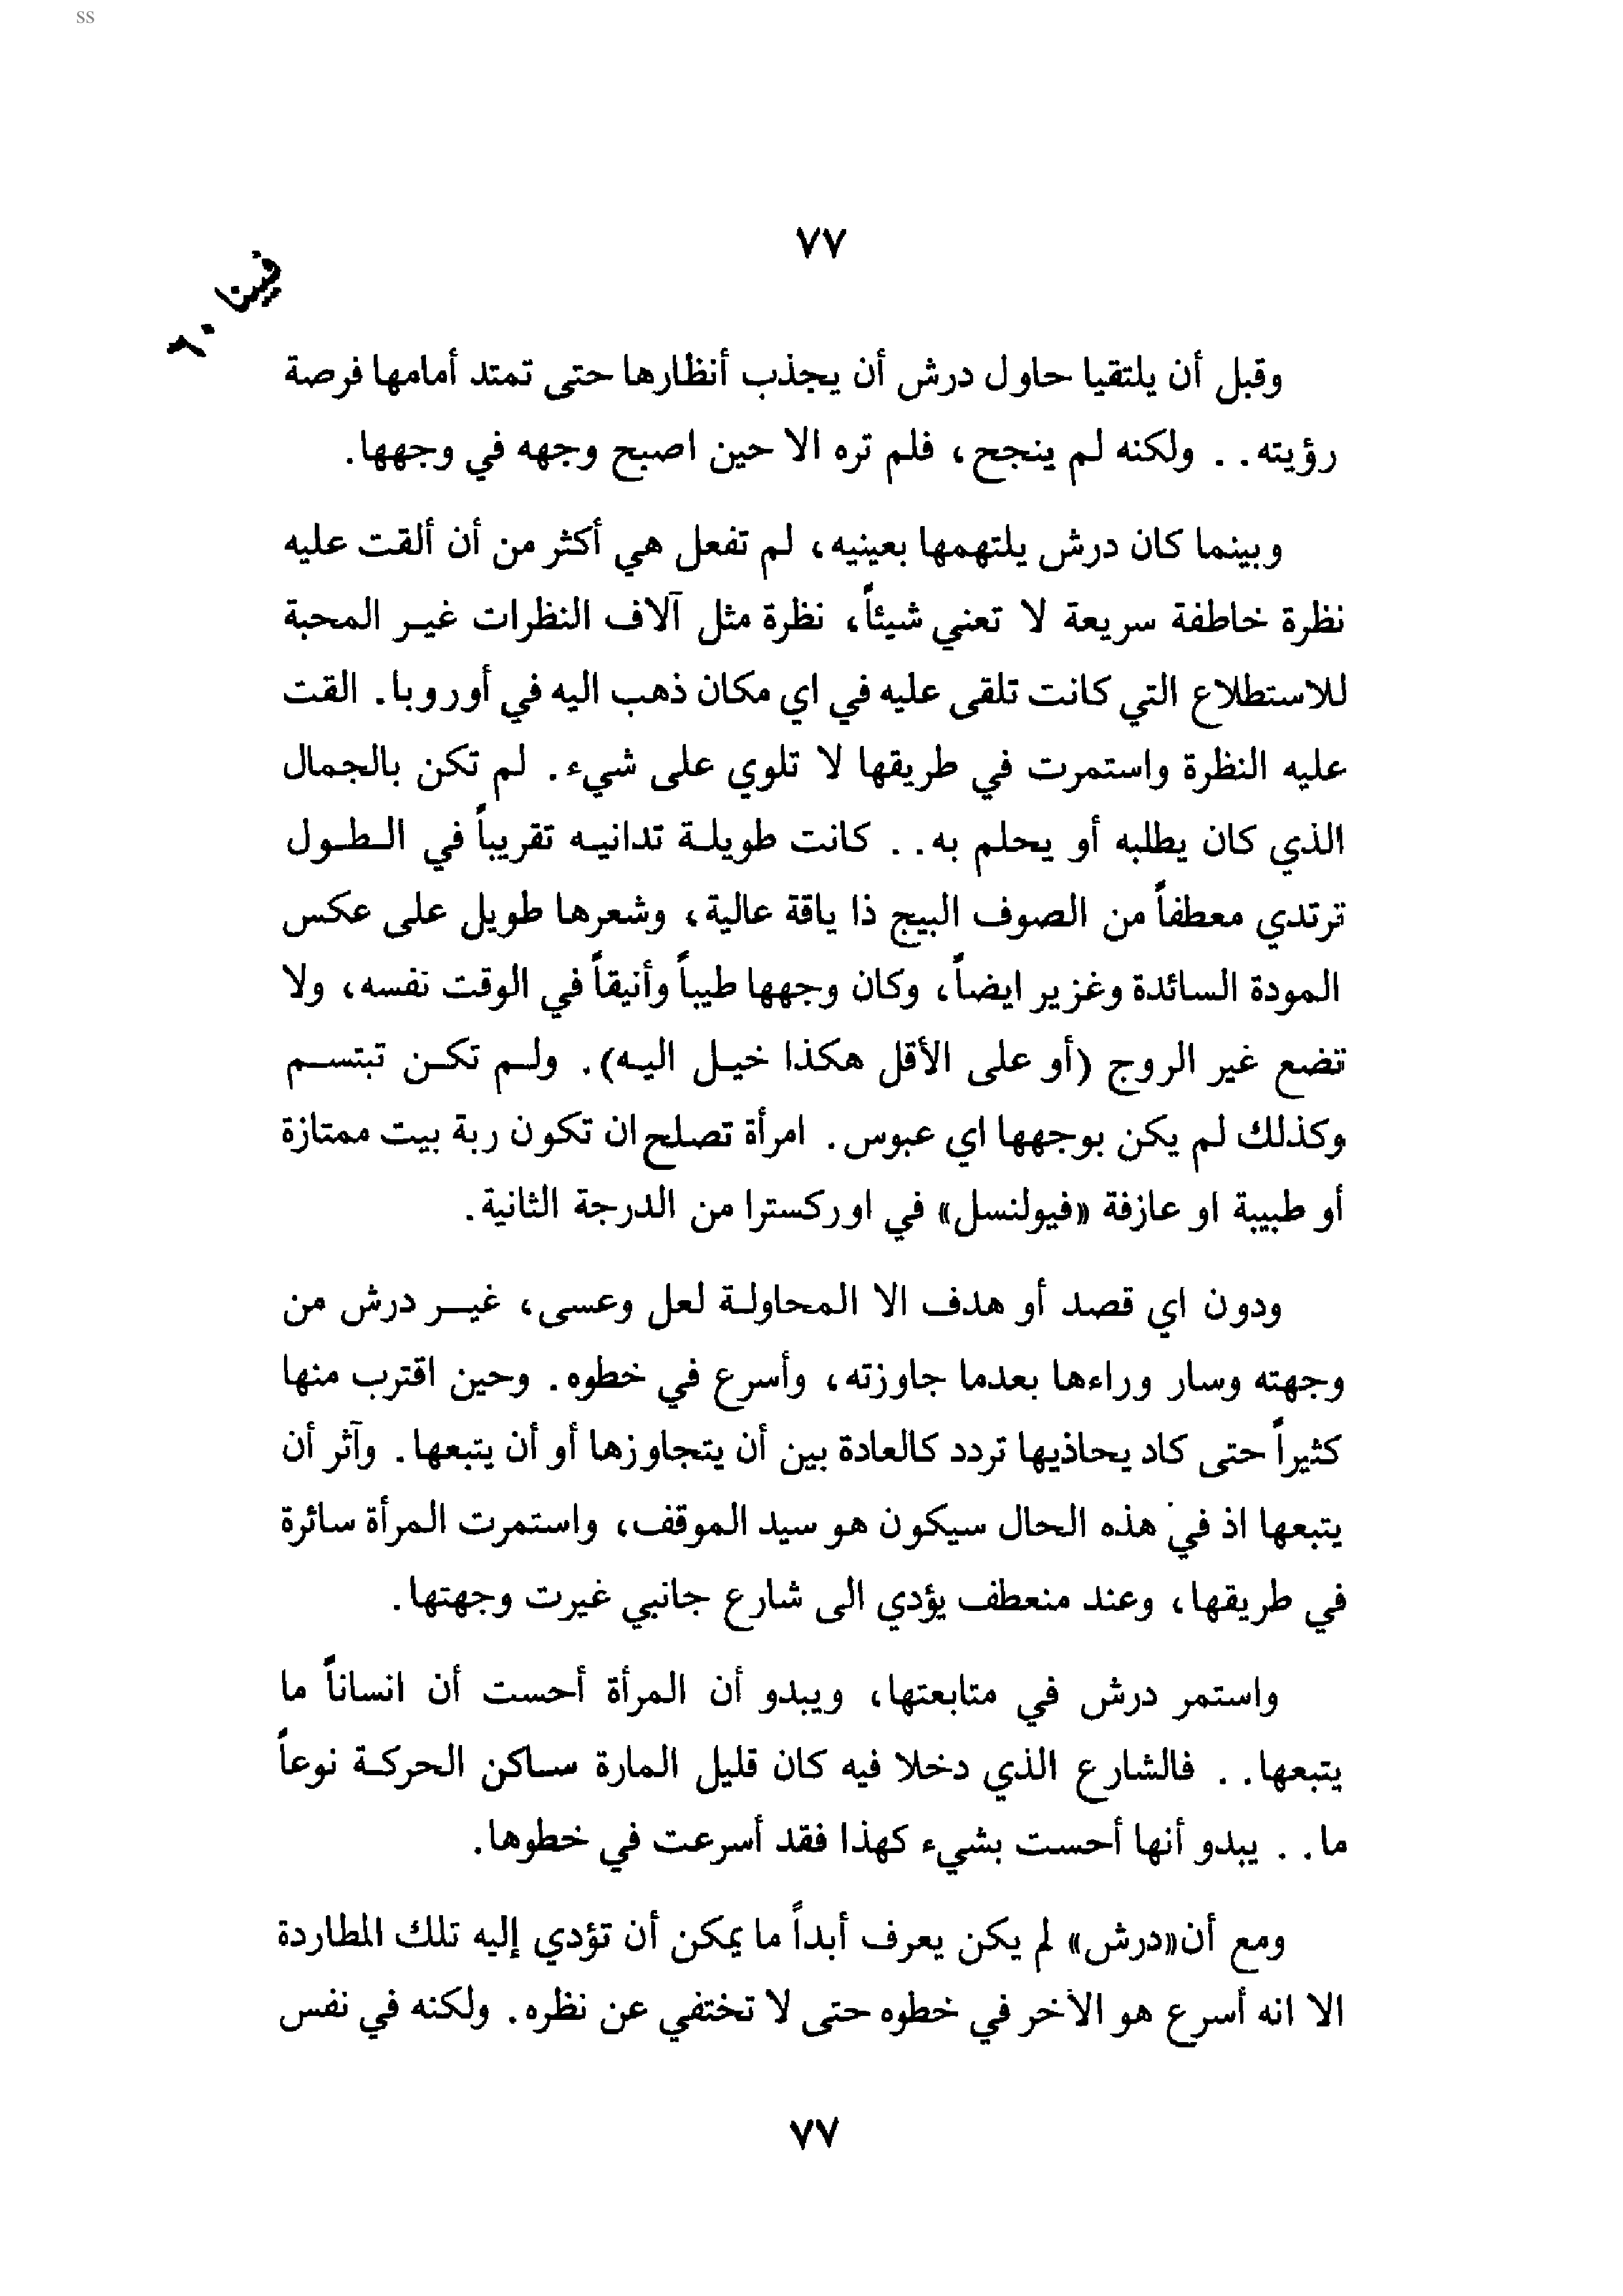 ss
٧٧
فيينا ٦٠
وقبل أن يلتقيا حاول درش أن يجذب أنظارها حتى تمتد أمامها فرصة
رؤيته . . ولكنه لم ينجح، فلم تره الا حين اصبح وجهه في وجهها.
وبينما كان درش يلتهمها بعينيه، لم تفعل هي أكثر من أن ألقت عليه
نظرة خاطفة سريعة لا تعني شيئاً، نظرة مثل آلاف النظرات غير المحبة
للاستطلاع التي كانت تلقى عليه في اي مكان ذهب اليه في أوروبا. القت
عليه النظرة واستمرت في طريقها لا تلوي على شيء. لم تكن بالجمال
الذي كان يطلبه أو يحلم به . . كانت طويلة تدانيه تقريباً في الطول
ترتدي معطفاً من الصوف البيج ذا ياقة عالية، وشعرها طويل على عكس
المودة السائدة وغزير ايضاً، وكان وجهها طيباً وأنيقاً في الوقت نفسه، ولا
تضع غير الروج (أو على الأقل هكذا خيل اليه). ولم تكن تبتسم
وكذلك لم يكن بوجهها اي عبوس. امرأة تصلح ان تكون ربة بيت ممتازة
أو طبيبة او عازفة «فيولنسل» في اوركسترا من الدرجة الثانية.
ودون اي قصد أو هدف الا المحاولة لعل وعسى، غير درش من
وجهته وسار وراءها بعدما جاوزته، وأسرع في خطوه. وحين اقترب منها
كثيراً حتى كاد يحاذيها تردد كالعادة بين أن يتجاوزها أو أن يتبعها. وآثر أن
يتبعها اذ في هذه الحال سيكون هو سيد الموقف، واستمرت المرأة سائرة
في طريقها، وعند منعطف يؤدي الى شارع جانبي غيرت وجهتها.
واستمر درش في متابعتها، ويبدو أن المرأة أحست أن انساناً ما
يتبعها . . فالشارع الذي دخلا فيه كان قليل المارة ساكن الحركة نوعاً
ما . . يبدو أنها أحست بشيء كهذا فقد أسرعت في خطوها.
ومع أن «درش» لم يكن يعرف أبداً ما يمكن أن تؤدي إليه تلك المطاردة
الا انه أسرع هو الآخر في خطوه حتى لا تختفي عن نظره. ولكنه في نفس
٧٧